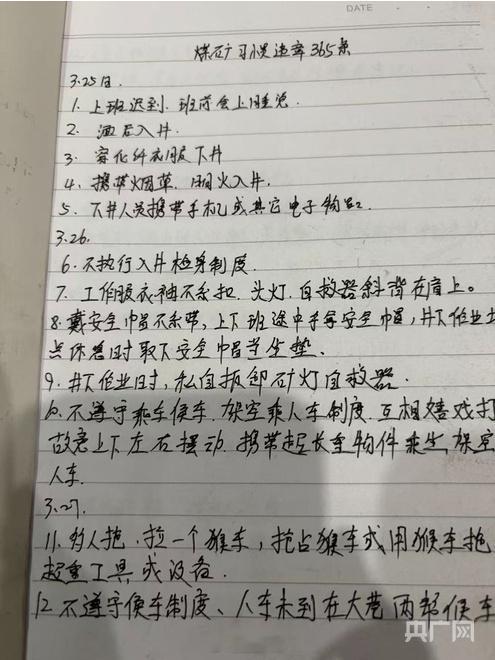 DATE
煤矿习惯违章365条
3.25日.
1. 上班迟到.班前会上睡觉.
2. 酒后入井.
3. 穿化纤衣服下井
4. 携带烟草.明火入井.
5. 下井人员携带手机或其它电子物品.
3.26.
6.不执行入井检身制度.
7. 工作服衣袖不系扣.头灯.自救器斜背在肩上。
8.戴安全帽不系带,上下班途中手拿安全帽,井下作业地
点休息时取下安全帽当坐垫.
9.井下作业时,私自拆卸矿灯自救器.
10.不遵守乘车候车.架空乘人车制度.互相嬉戏打
故意上下左右摆动.携带超长重物件乘坐架空
人车.
3.27.
11.多人抢.拉一个猴车,抢占猴车或用猴车拖
超重工具或设备.
12.不遵守候车制度、人车未到在大巷两部候车
央广网